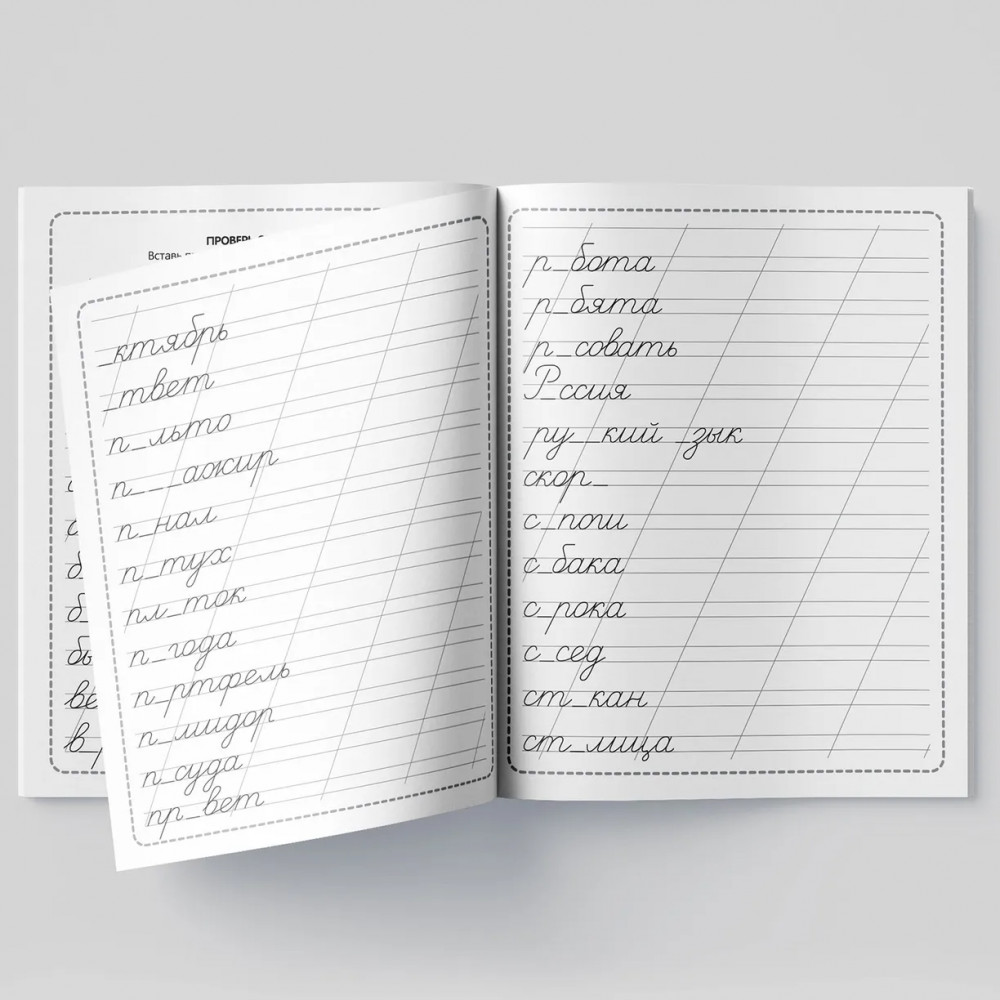 ПРОВЕРЬ
Вставь
_ктябрь
_твет
п_льто
п_ _ _ажир
п_нал
п_тух
пл_ток
п_года
п_ртфель
п_мидор
п_суда
пр_вет
р_бота
р_бята
р_совать
Р_ссия
ру_ _кий _зык
скор_
с_поги
с_бака
с_рока
с_сед
ст_кан
ст_лица